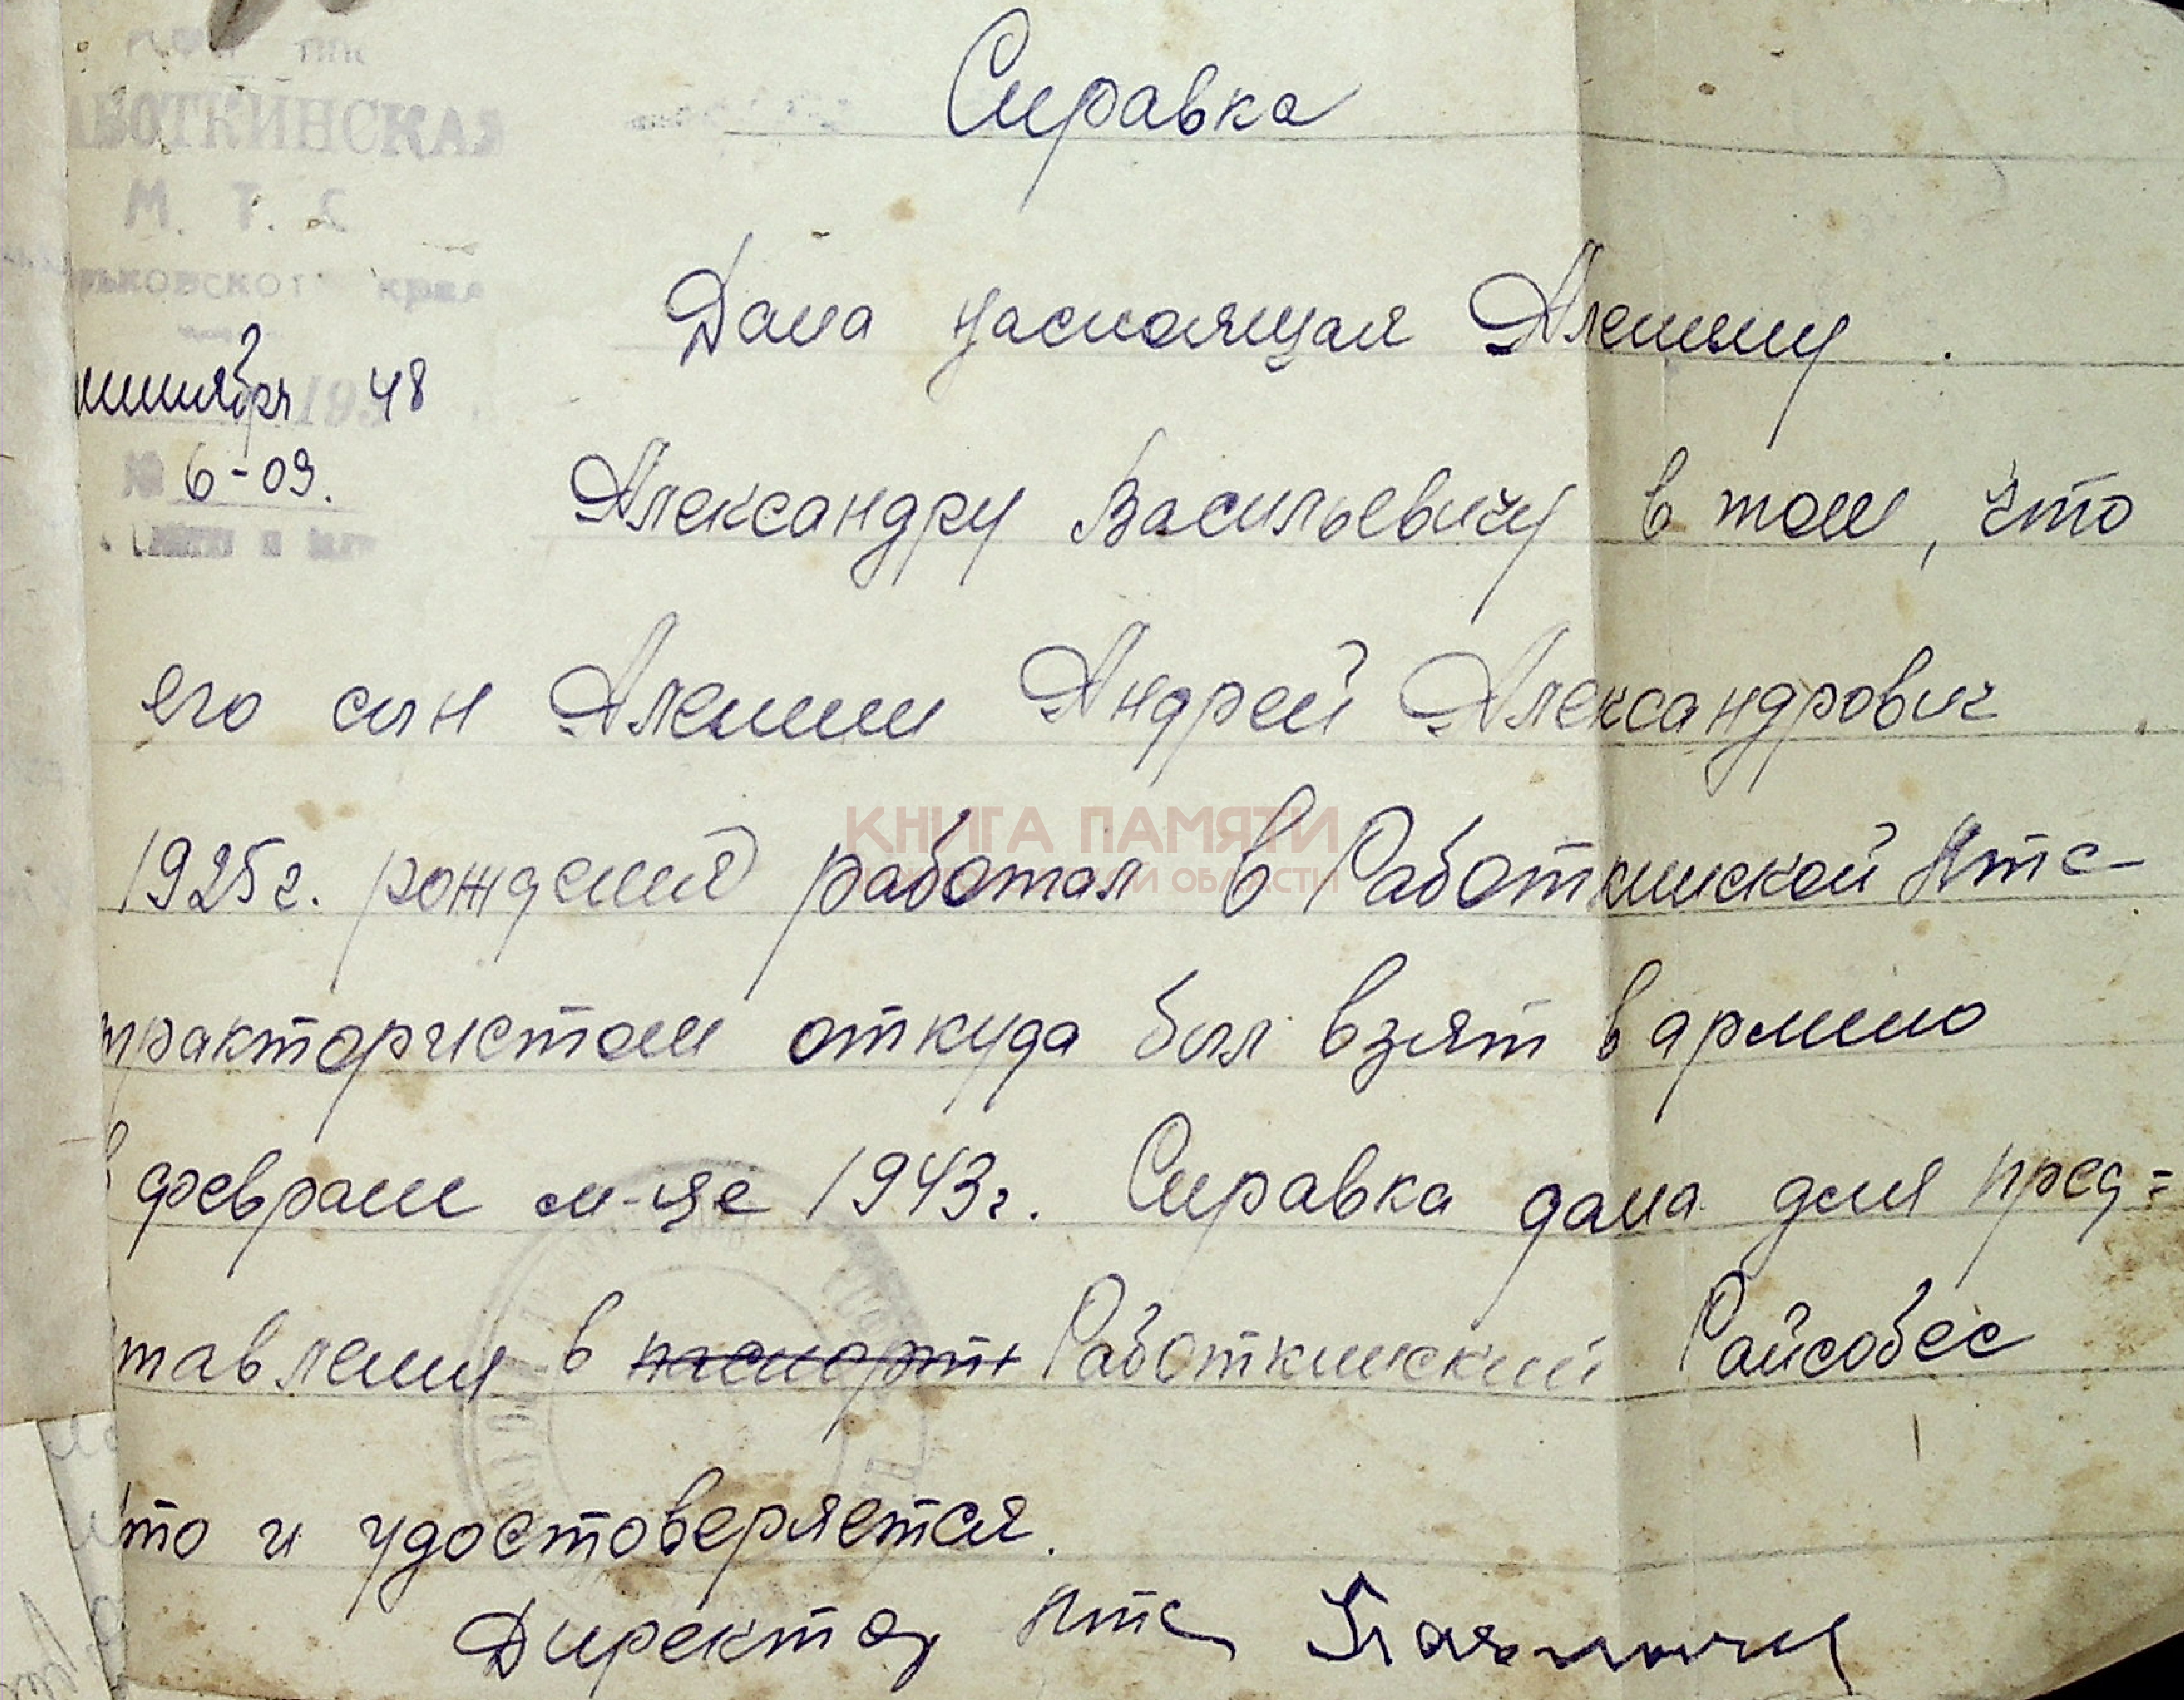 Справка
АБОТКИНСКАЯ
М. Т. С
рьковског края
нтября 193 48
№ 6-09.
Дана настоящая Алешину
Александру Васильевичу в том, что
его сын Алешин Андрей Александрович
1925г. рождения работал в Работкинской МТС-
трактористом откуда был взят в армию
в феврале м-це 1943г. Справка дана для пред=
тавления в паспорт Работкинский Райсобес
что и удостоверяется.
Директор МТС
КНИГА ПАМЯТИ
ОЙ ОБЛАСТИ